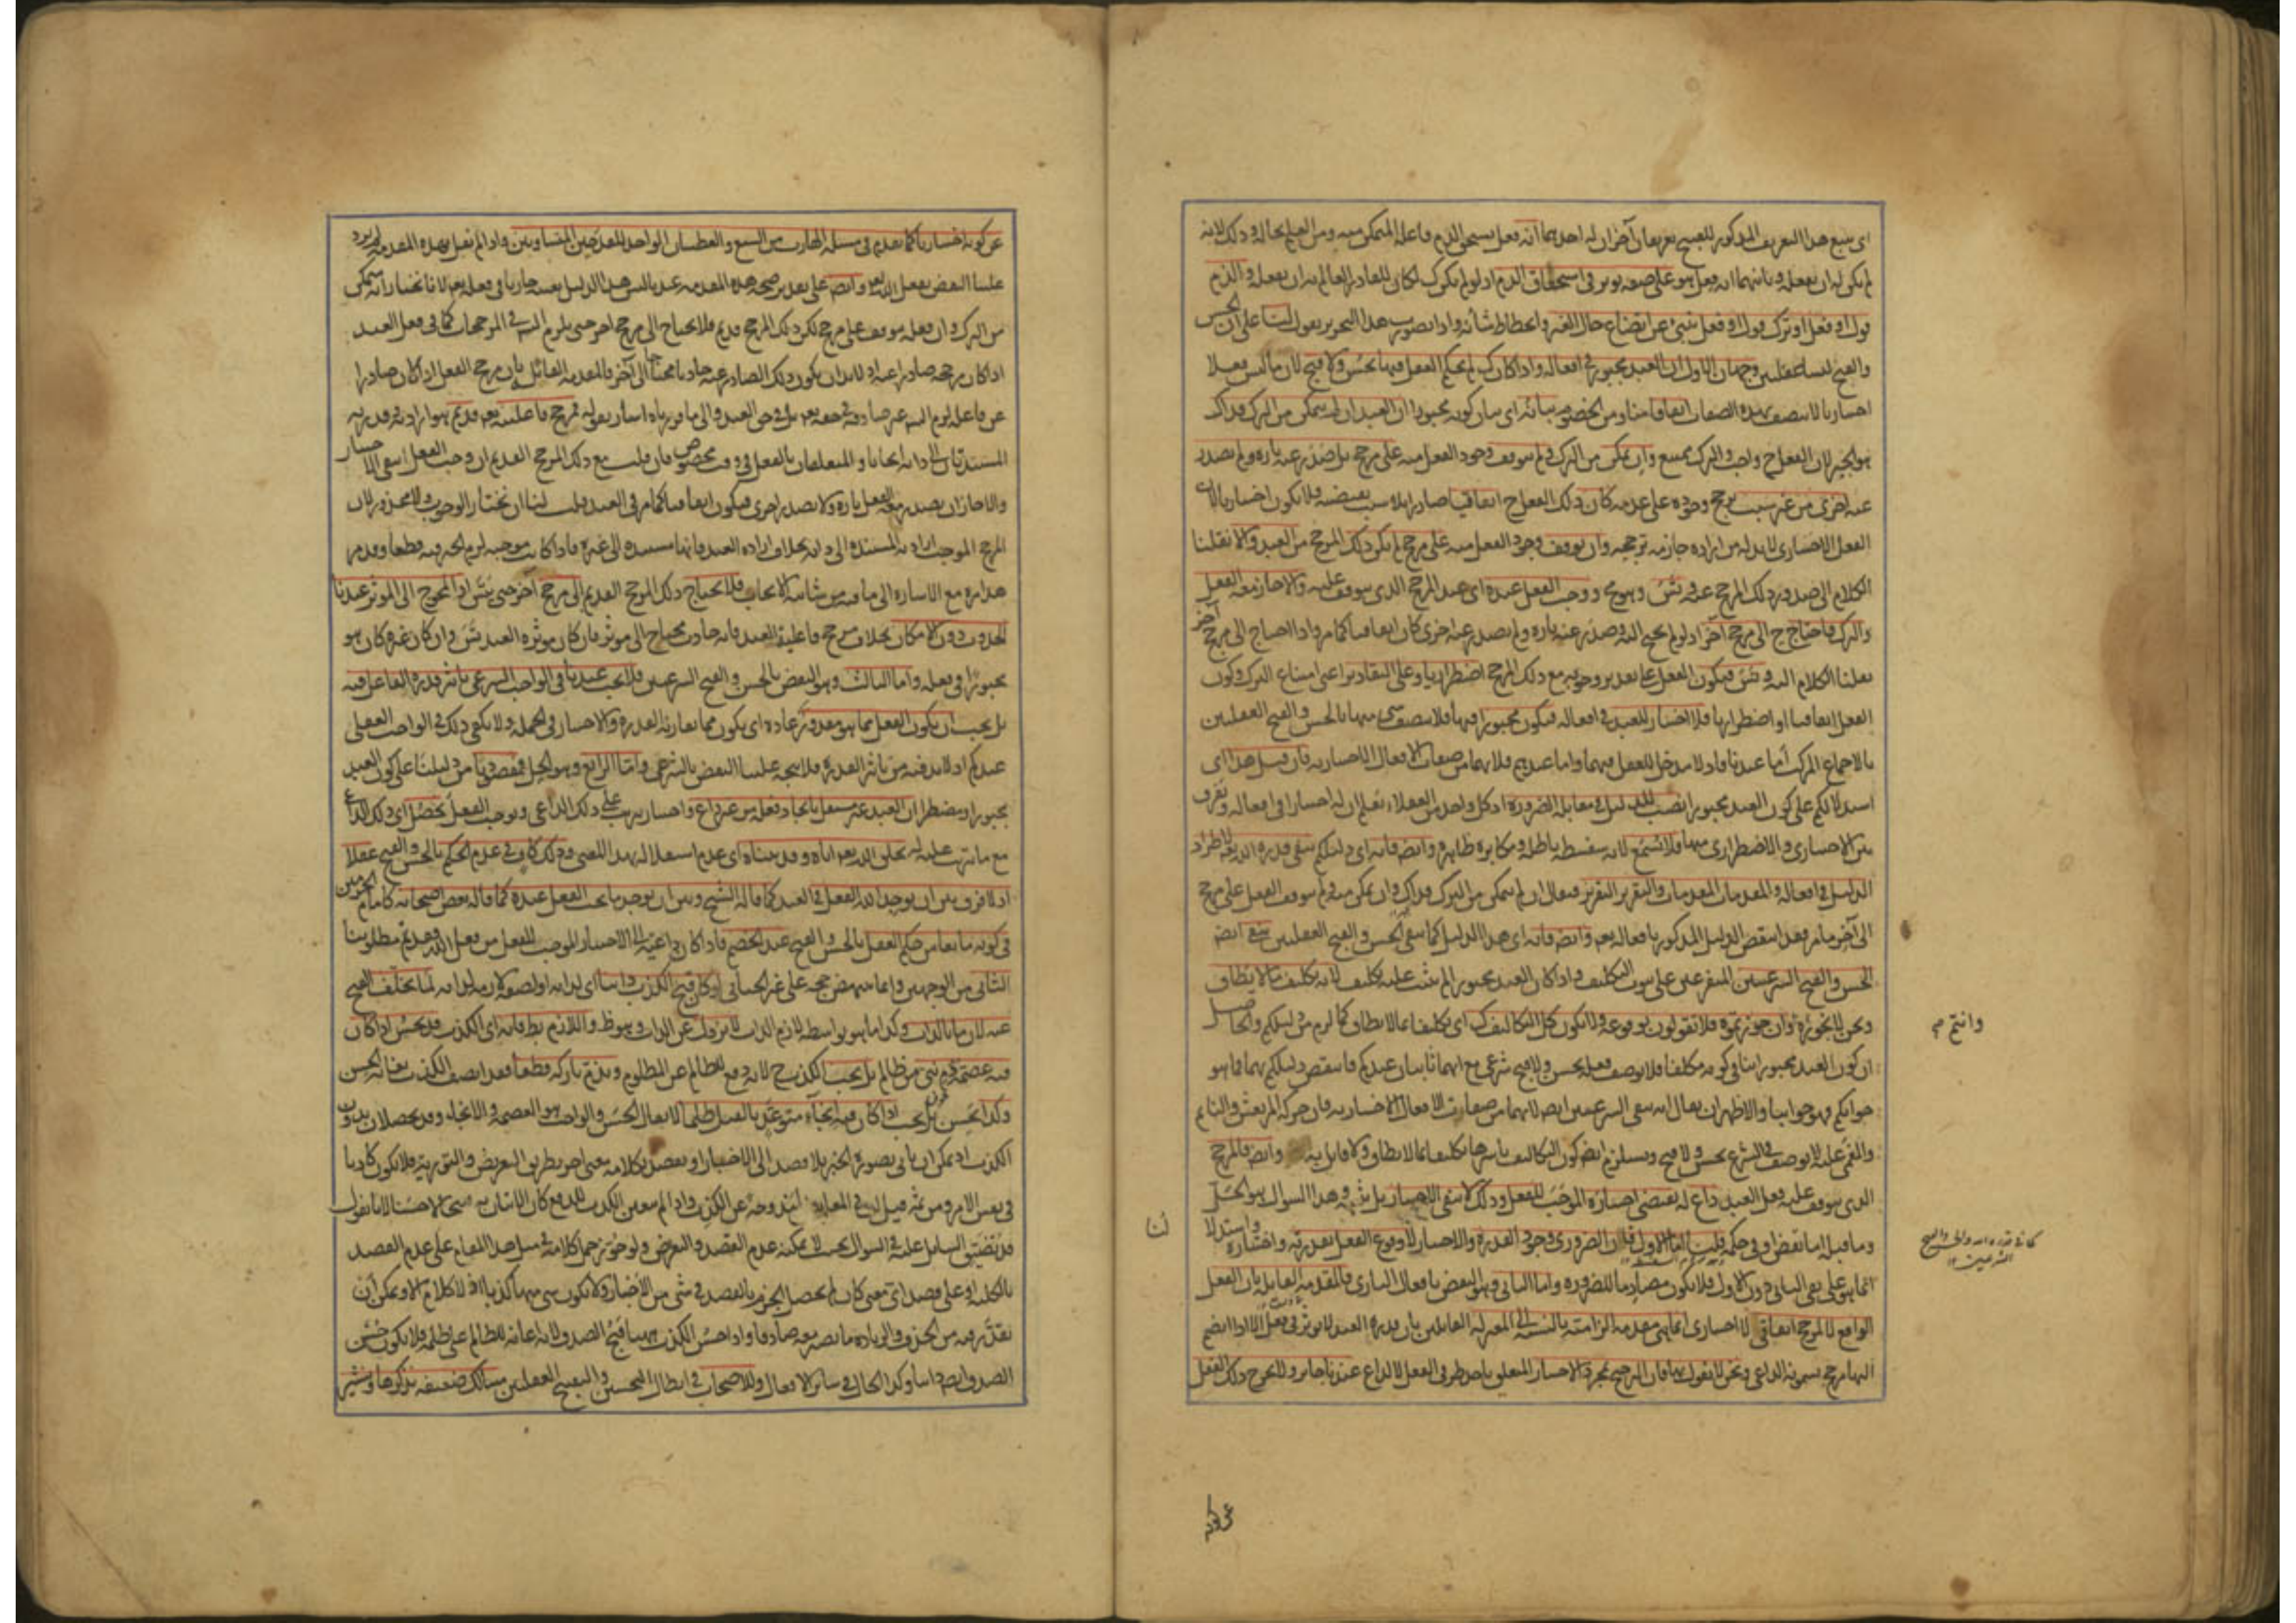 اى يتبع هذا التعريف المذكور للقبيح تعريفان آخران له احدهما انه فعل يستحق الذم فاعله المتمكن منه ومن العلم بحاله وذلك لانه
لم يكن له ان يفعله وثانيهما انه فعل هو على صفة تؤثر فى استحقاق الذم اذ لو لم يكن كك لكان للقادر العالم به ان يفعله والذم
قول او فعل او ترك قول او فعل ينبئ عن اتضاع حال الغير وانحطاط شأنه واذا تصورت هذا التحرير نقول لنا على ان الحسن
والقبح ليسا عقليين وجهان الاول ان العبد مجبور فى افعاله واذا كان كك لم يحكم العقل فيها بحسن ولا قبح لان ما ليس فعلا
اختياريا لا يتصف بهذه الصفات اتفاقا منا ومن الخصوم بيانه اى بيان كونه مجبورا ان العبد ان لم يتمكن من الترك فذاك
هو الجبر لان الفعل ح واجب والترك ممتنع وان تمكن من الترك ولم يتوقف وجود الفعل منه على مرجح بل صدر عنه تارة ولم يصدر
عنه اخرى من غير سبب يرجح وجوده على عدمه كان ذلك الفعل ح اتفاقيا صادرا بلا سبب يقتضيه فلا يكون اختياريا لان
الفعل الاختيارى لا بد له من ارادة جازمة ترجحه وان توقف وجود الفعل منه على مرجح لم يكن ذلك المرجح من العبد والا نقلنا
الكلام الى صدور ذلك المرجح عنه وتس وهو مح ووجب الفعل عنده اى عند المرجح الذى يتوقف عليه والا جاز معه الفعل
والترك فاحتاج ح الى مرجح آخر اذ لو لم يحتج اليه وصدر عنه تارة ولم يصدر عنه اخرى كان اتفاقيا كما مر واذا احتاج الى مرجح آخر
نقلنا الكلام اليه وتس فيكون الفعل على تقدير وجوبه مع ذلك المرجح اضطراريا وعلى التقادير اعنى امتناع الترك وكون
الفعل اتفاقيا او اضطراريا فلا اختيار للعبد فى افعاله فيكون مجبورا فيها فلا يتصف شئ منها بالحسن والقبح العقليين
بالاجماع المركب اما عندنا فاذ لا مدخل للعقل فيهما واما عندهم فلانهما من صفات الافعال الاختيارية فان قيل هذا اى
استدلالكم على كون العبد مجبورا نصب للدليل فى مقابلة الضرورة اذ كل واحد من العقلاء يعلم ان له اختيارا فى افعاله ويفرق
بين الاختيارى والاضطرارى منها فلا تسمع لانه سفسطة باطلة ومكابرة ظاهرة وايضا فانه اى دليلكم ينفى قدرة الله تعالى لاطراد
الدليل فى افعاله والمقدمات المقدمات والتقرير التقرير فيقال ان لم يتمكن من الترك فذاك وان تمكن منه ولم يتوقف الفعل على مرجح
الى آخر ما مر فقد انتقض الدليل المذكور بافعاله تعالى وايضا فانه اى هذا الدليل كما ينفى الحسن والقبح العقليين ينفى ايضا
الحسن والقبح الشرعيين المتفرعين على ثبوت التكليف واذا كان العبد مجبورا لم يثبت عليه تكليف لانه تكليف ما لا يطاق
ونحن لا نجوزه وان جوزتموه فلا تقولون بوقوعه ولا تكون كل التكاليف كك اى تكليفا بما لا يطاق كما لزم من دليلكم والحاصل
ان كون العبد مجبورا ينافى كونه مكلفا فلا يوصف فعله بحسن ولا قبح شرعى مع انهما ثابتان عندكم فانتقض دليلكم بهما فما هو
جوابكم فهو جوابنا والاظهر ان يقال انه ينفى الشرعيين ايضا لانهما من صفات الافعال الاختيارية فان حركة المرتعش والنائم
والمغمى عليه لا يوصف فى الشرع بحسن ولا قبح ويستلزم ايضا كون التكاليف باسرها تكليفا بما لا يطاق ولا قائل به وايضا فالمرجح
الذى يتوقف عليه فعل العبد داع له يقتضى اختياره الموجب للفعل وذلك لا ينفى الاختيار بل يثبته وهذا السؤال هو الحل
وما قبله اما نقض او فى حكمه قلنا اما الاول فلان الضرورى وجود القدرة والاختيار لا وقوع الفعل بقدرته واختياره واستدلالنا
انما هو على نفى الثانى دون الاول فلا يكون مصادما للضرورة واما الثانى وهو النقض بافعال البارى فالمقدمة القائلة بان الفعل
الواقع لا لمرجح اتفاقى لا اختيارى انما هى مقدمة الزامية بالنسبة الى المعتزلة القائلين بان قدرة العبد لا تؤثر فى فعل الا اذا انضم
اليها مرجح يسمونه الداعى ونحن لا نقول بها فان الترجيح بمجرد الاختيار المتعلق باحد طرفى الفعل لا لداع عندنا جائز ولا يخرج ذلك الفعل
وانتم م
كما فى قدرة الله والحسن والقبح
الشرعيين
عن كونه
عن كونه اختياريا كما تقدم فى مسئلة الهارب من السبع والعطشان الواجد للقدحين المتساويين واذا لم نقل بهذه المقدمة لم يرد
علينا النقض بفعل الله تعالى وايضا على تقدير صحة هذه المقدمة عندنا ليس هذا الدليل بعينه جاريا فى فعله تعالى لانا نختار انه يتمكن
من الترك وان فعله يتوقف على مرجح لكن ذلك المرجح قديم فلا يحتاج الى مرجح آخر حتى يلزم التس فى المرجحات كما فى فعل العبد
اذا كان مرجحه صادرا عنه اذ لا بد ان يكون ذلك الصادر عنه حادثا محتاجا الى آخر فالمقدمة القائلة بان مرجح الفعل اذا كان صادرا
عن فاعله لزم التس غير صادقة فى حقه تعالى بل فى حق العبد والى ما قررناه اشار بقوله فمرجح فاعليته تعالى قديم هو ارادته وقدرته
المستندتان الى ذاته ايجابا والمتعلقتان بالفعل فى وقت مخصوص فان قلت مع ذلك المرجح القديم ان وجب الفعل انتفى الاختيار
والا جاز ان يصدر معه الفعل تارة ولا يصدر اخرى فيكون اتفاقيا كما مر فى العبد قلت لنا ان نختار الوجوب ولا محذور لان
المرجح الموجب ارادته المستندة الى ذاته بخلاف ارادة العبد فانها مستندة الى غيره فاذا كانت موجبة لزم الجبر فيه قطعا وقد مر
هذا مرة مع الاشارة الى ما فيه من شائبة الايجاب فلا يحتاج ذلك المرجح القديم الى مرجح آخر حتى يتس اذ المحوج الى المؤثر عندنا
الحدوث دون الامكان بخلاف مرجح فاعلية العبد فانه حادث محتاج الى مؤثر فان كان مؤثره العبد تس وان كان غيره كان هو
مجبورا فى فعله واما الثالث وهو النقض بالحسن والقبح الشرعيين فلا يجب عندنا فى الواجب الشرعى تأثير قدرة الفاعل فيه
بل يجب ان يكون الفعل مما هو مقدور عادة اى يكون مما يقارنه القدرة والاختيار فى الجملة ولا يكفى ذلك فى الواجب العقلى
عندكم اذ لا بد فيه من تأثير القدرة فلا يتجه علينا النقض بالشرعى واما الرابع وهو الحل فمقصودنا من دليلنا على كون العبد
مجبورا ومضطرا ان العبد غير مستقل بايجاد فعله من غير داع واختيار يترتب على ذلك الداعى ويوجب الفعل يحصل اى ذلك الداعى
مع ما يترتب عليه له بخلق الله تعالى اياه وقد بيناه اى عدم استقلاله بهذا المعنى وذلك كاف فى عدم الحكم بالحسن والقبح عقلا
اذ لا فرق بين ان يوجد الله الفعل فى العبد كما قاله الشيخ وبين ان يوجد ما يجب الفعل عنده كما قاله بعض اصحابنا كامام الحرمين
فى كونه مانعا من حكم العقل بالحسن والقبح عند الخصم فاذا كان داعيته الى الاختيار الموجب للفعل من فعل الله تعالى فقد تم مطلوبنا
الثانى من الوجهين وانما ينهض حجة على غير الجبائى لو كان قبح الكذب ذاتيا اى لذاته او لصفة لازمة لذاته لما تخلف القبح
عنه لان ما بالذات وكذا ما هو بواسطة لازم الذات لا يزول عن الذات وهو ظ واللازم بط فانه اى الكذب قد يحسن اذا كان
فيه عصمة دم نبى من ظالم بل يجب الكذب ح لانه دفع للظالم عن المظلوم ويذم تاركه قطعا فقد اتصف الكذب بغاية الحسن
وكذا يحسن بل يجب اذا كان فيه انجاء متوعد بالقتل ظلما لا يقال الحسن والواجب هو العصمة والانجاء وقد يحصلان بدون
الكذب اذ يمكن ان يأتى بصورة الخبر بلا قصد الى الاخبار او يقصد بكلامه معنى آخر بطريق التعريض والتورية فلا يكون كاذبا
فى نفس الامر ومن ثمة قيل ان فى المعاريض لمندوحة عن الكذب واذا لم يتعين الكذب للدفع كان الاتيان به قبيحا لا حسنا لانا نقول
قد يضيق السائل عليه فى السؤال بحيث لا يمكنه عدم القصد والتعريض ولو جوز حمل كلامه فى مثل هذا المقام على عدم القصد
بالكلية او على قصد اى معنى كان لم يحصل الجزم بالقصد فى شئ من الاخبار ولا يكون شئ منها كذبا اذ لا كلام الا ويمكن ان
يقدر فيه من الحذف والزيادة ما يصير معه صادقا واذا حسن الكذب ههنا قبح الصدق لانه اعانة للظالم على ظلمه فلا يكون حسن
الصدق ايضا ذاتيا وكذا الحال فى سائر الافعال وللاصحاب فى ابطال التحسين والتقبيح العقليين مسالك ضعيفة نذكرها ونشير